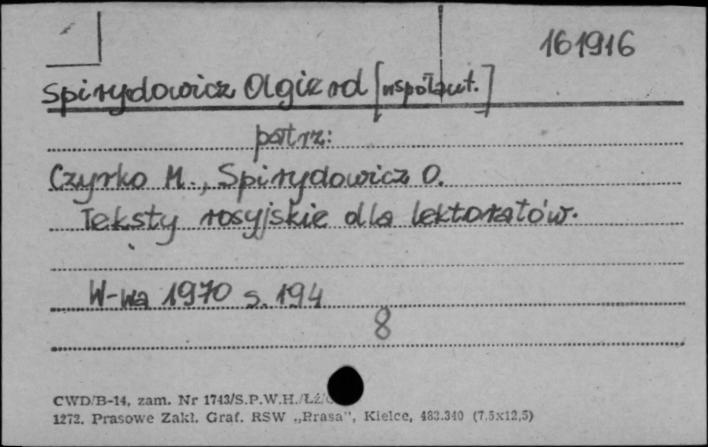 161916
Spirydowicz Olgierd [współaut.]
patrz:
Czyrko M., Spirydowicz O.
Teksty rosyjskie dla lektoratów.
W-wa 1970 s. 194
8
CWD/B-14, zam. Nr 1743/S.P.W.H./Łź/
1272. Prasowe Zakł. Graf. RSW „Prasa", Kielce, 483.340 (7,5x12,5)